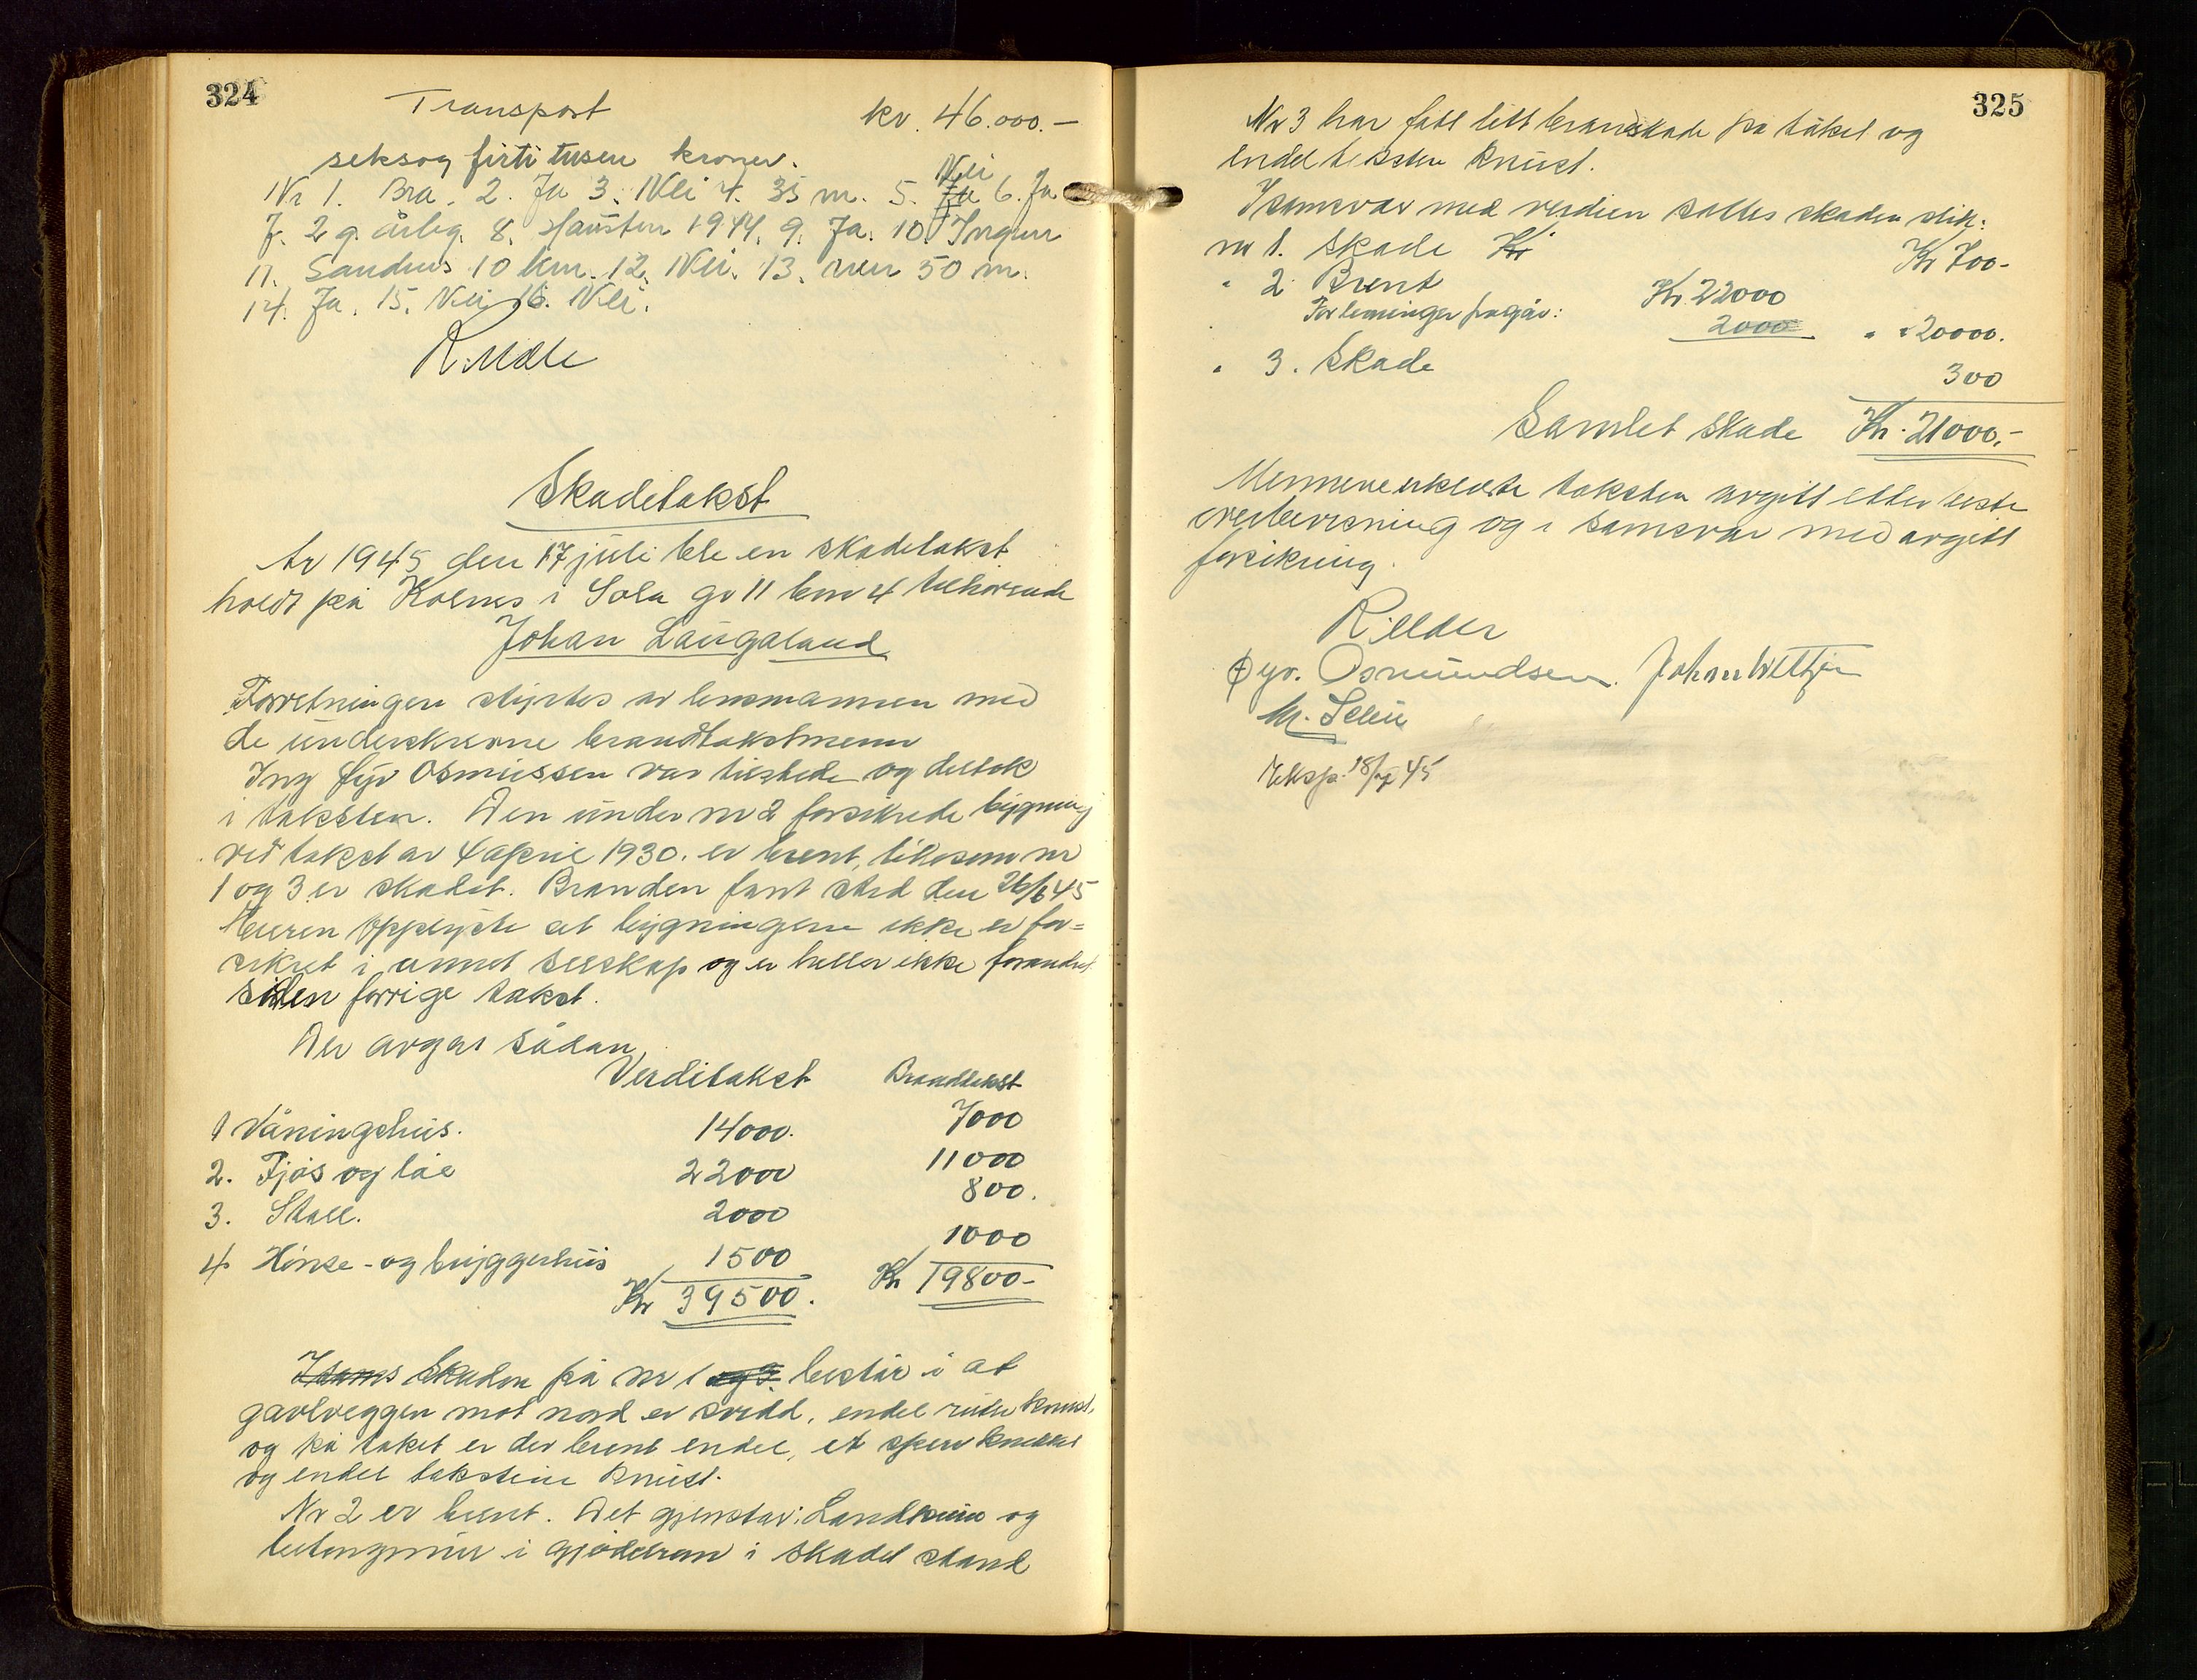 324
Transport kr. 46.000.-
seksog firti tusen kroner.
Nei
Nr 1. Bra. 2. Ja 3. Nei 4. 35 m. 5. Ja 6. Ja
7. 2 g. årleg. 8. Hausten 1944. 9. Ja. 10. Ingen
11. Sandnes 10 km. 12. Nei. 13. 50 m.
14. Ja. 15. Nei 16. Nei.
Skadetakst
År 1945 den 17 juli ble en skadetakst
holdt på Kolnes i Sola gr 11 bnr 4 tilhørende
Johan Laugaland
Forretningen styrtes av lensmannen med
de underskrevne brandtakstmenn
Ing Øyv Osmussen var tilstede og deltok
i taksten. Den under nr 2 forsikrede bygning
ved takst av 4 april 1930. er brent, likesom nr
1 og 3 er skadet. Branden fant sted den 26/6 45
Eieren opplyste at bygningene ikke er for-
sikret i annet selskap og er heller ikke forandret
siden forrige takst.
Der avgas sådan
Verditakst Brandtakst
1 Våningshus. 14000. 7000
2. Fjøs og løe 22000 11000
3. Stall. 2000 800.
4 Hønse- og bryggerhus 1500 1000
Kr 39500. Kr 19800-
Isams Skaden på nr 1 og 3 består i at
gavlveggen mot nord er svidd, endel ruter knust,
og på taket er der brent endel, et sperr knekket
og endel takstein knust.
Nr 2 er brent. Det gjenstår: og
betongmur i i skadet stand
325
Nr 3 har fått litt brandskade på taket og
endel knust.
I samsvar med verdien settes skaden slik:
nr 1. Skade Kr Kr 700-
" 2 Brent Kr. 22000
For levninger fragår: 2000 " 20000.
" 3. Skade 300
Samlet skade Kr. 21000.-
Mennene erklærte taksten avgitt etter beste
overbevisning og i samsvar med avgitt
forsikring.
Øyv. Osmundsen.
Eksp. 18/7 45